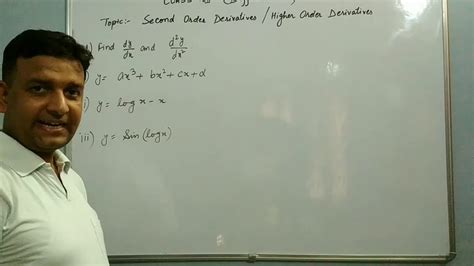 Topic:- Second Order Derivatives / Higher Order Derivatives
) Find dy/dx and d²y/dx²
) y = ax³ + bx² + cx + d
) y = log x - x
iii) y = Sin (log x)